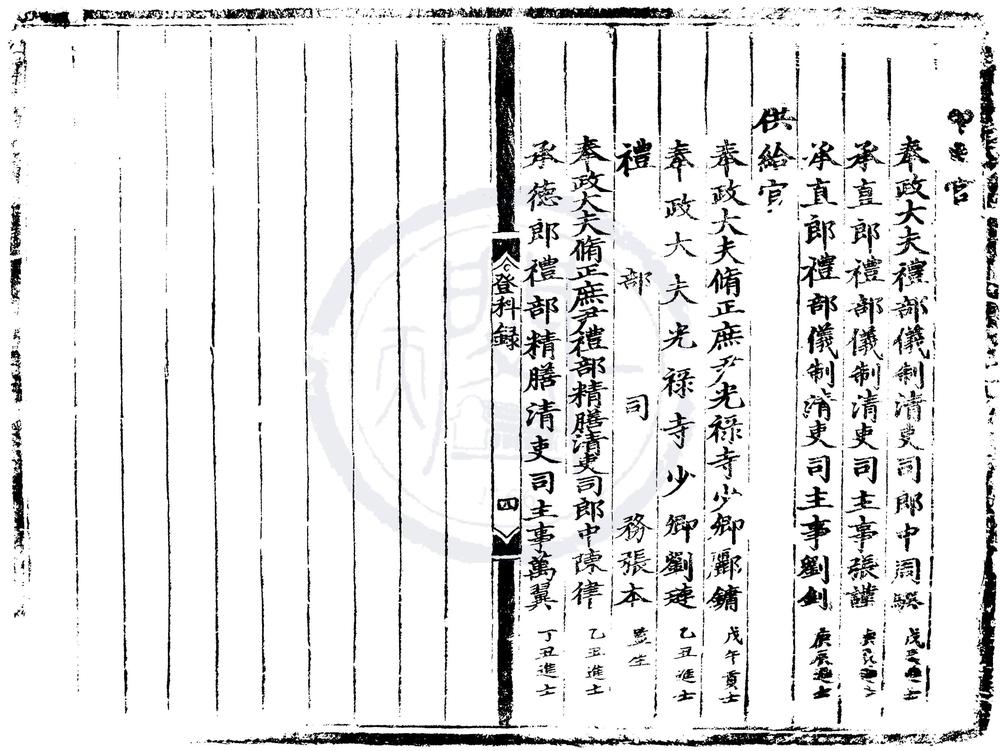 官
奉政大夫禮部儀制清吏司郎中周騤 戊辰進士
承直郎禮部儀制清吏司主事張謹 庚辰進士
承直郎禮部儀制清吏司主事劉釗 庚辰進士
供給官
奉政大夫脩正庶尹光祿寺少卿酈鏞 戊午貢士
奉政大夫光祿寺少卿劉璉 乙丑進士
禮部司務張本 監生
奉政大夫脩正庶尹禮部精膳清吏司郎中陳律 乙丑進士
承德郎禮部精膳清吏司主事萬翼 丁丑進士
登科録
四